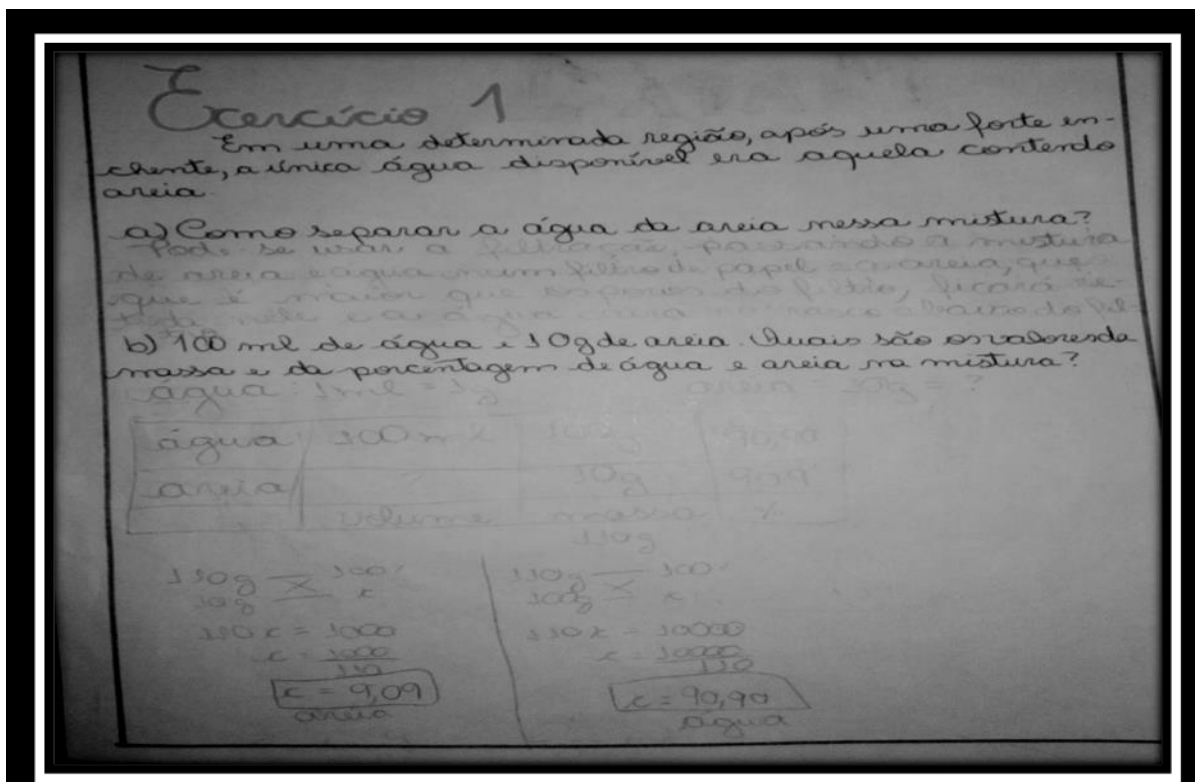 Exercício 1
Em uma determinada região, após uma forte en-
chente, a única água disponível era aquela contendo
areia.
a) Como separar a água da areia nessa mistura?
Pode-se usar a filtração, passando a mistura
de areia e água num filtro de papel e a areia, que
que é maior que os poros do filtro, ficará re-
nele e a água no vasco abaixo do fil-
b) 100 ml de água e 10g de areia. Quais são os valores da
massa e da porcentagem de água e areia na mistura?
água: 1ml = 1g areia = 10g = ?
água 100 ml 100g 90,90
areia ? 10g 9,09
volume massa %
110g
110g 100% 110g 100%
10g x 100g x
110x = 1000 110x = 10000
x = 1000 x = 10000
110 110
x = 9,09 x = 90,90
areia água